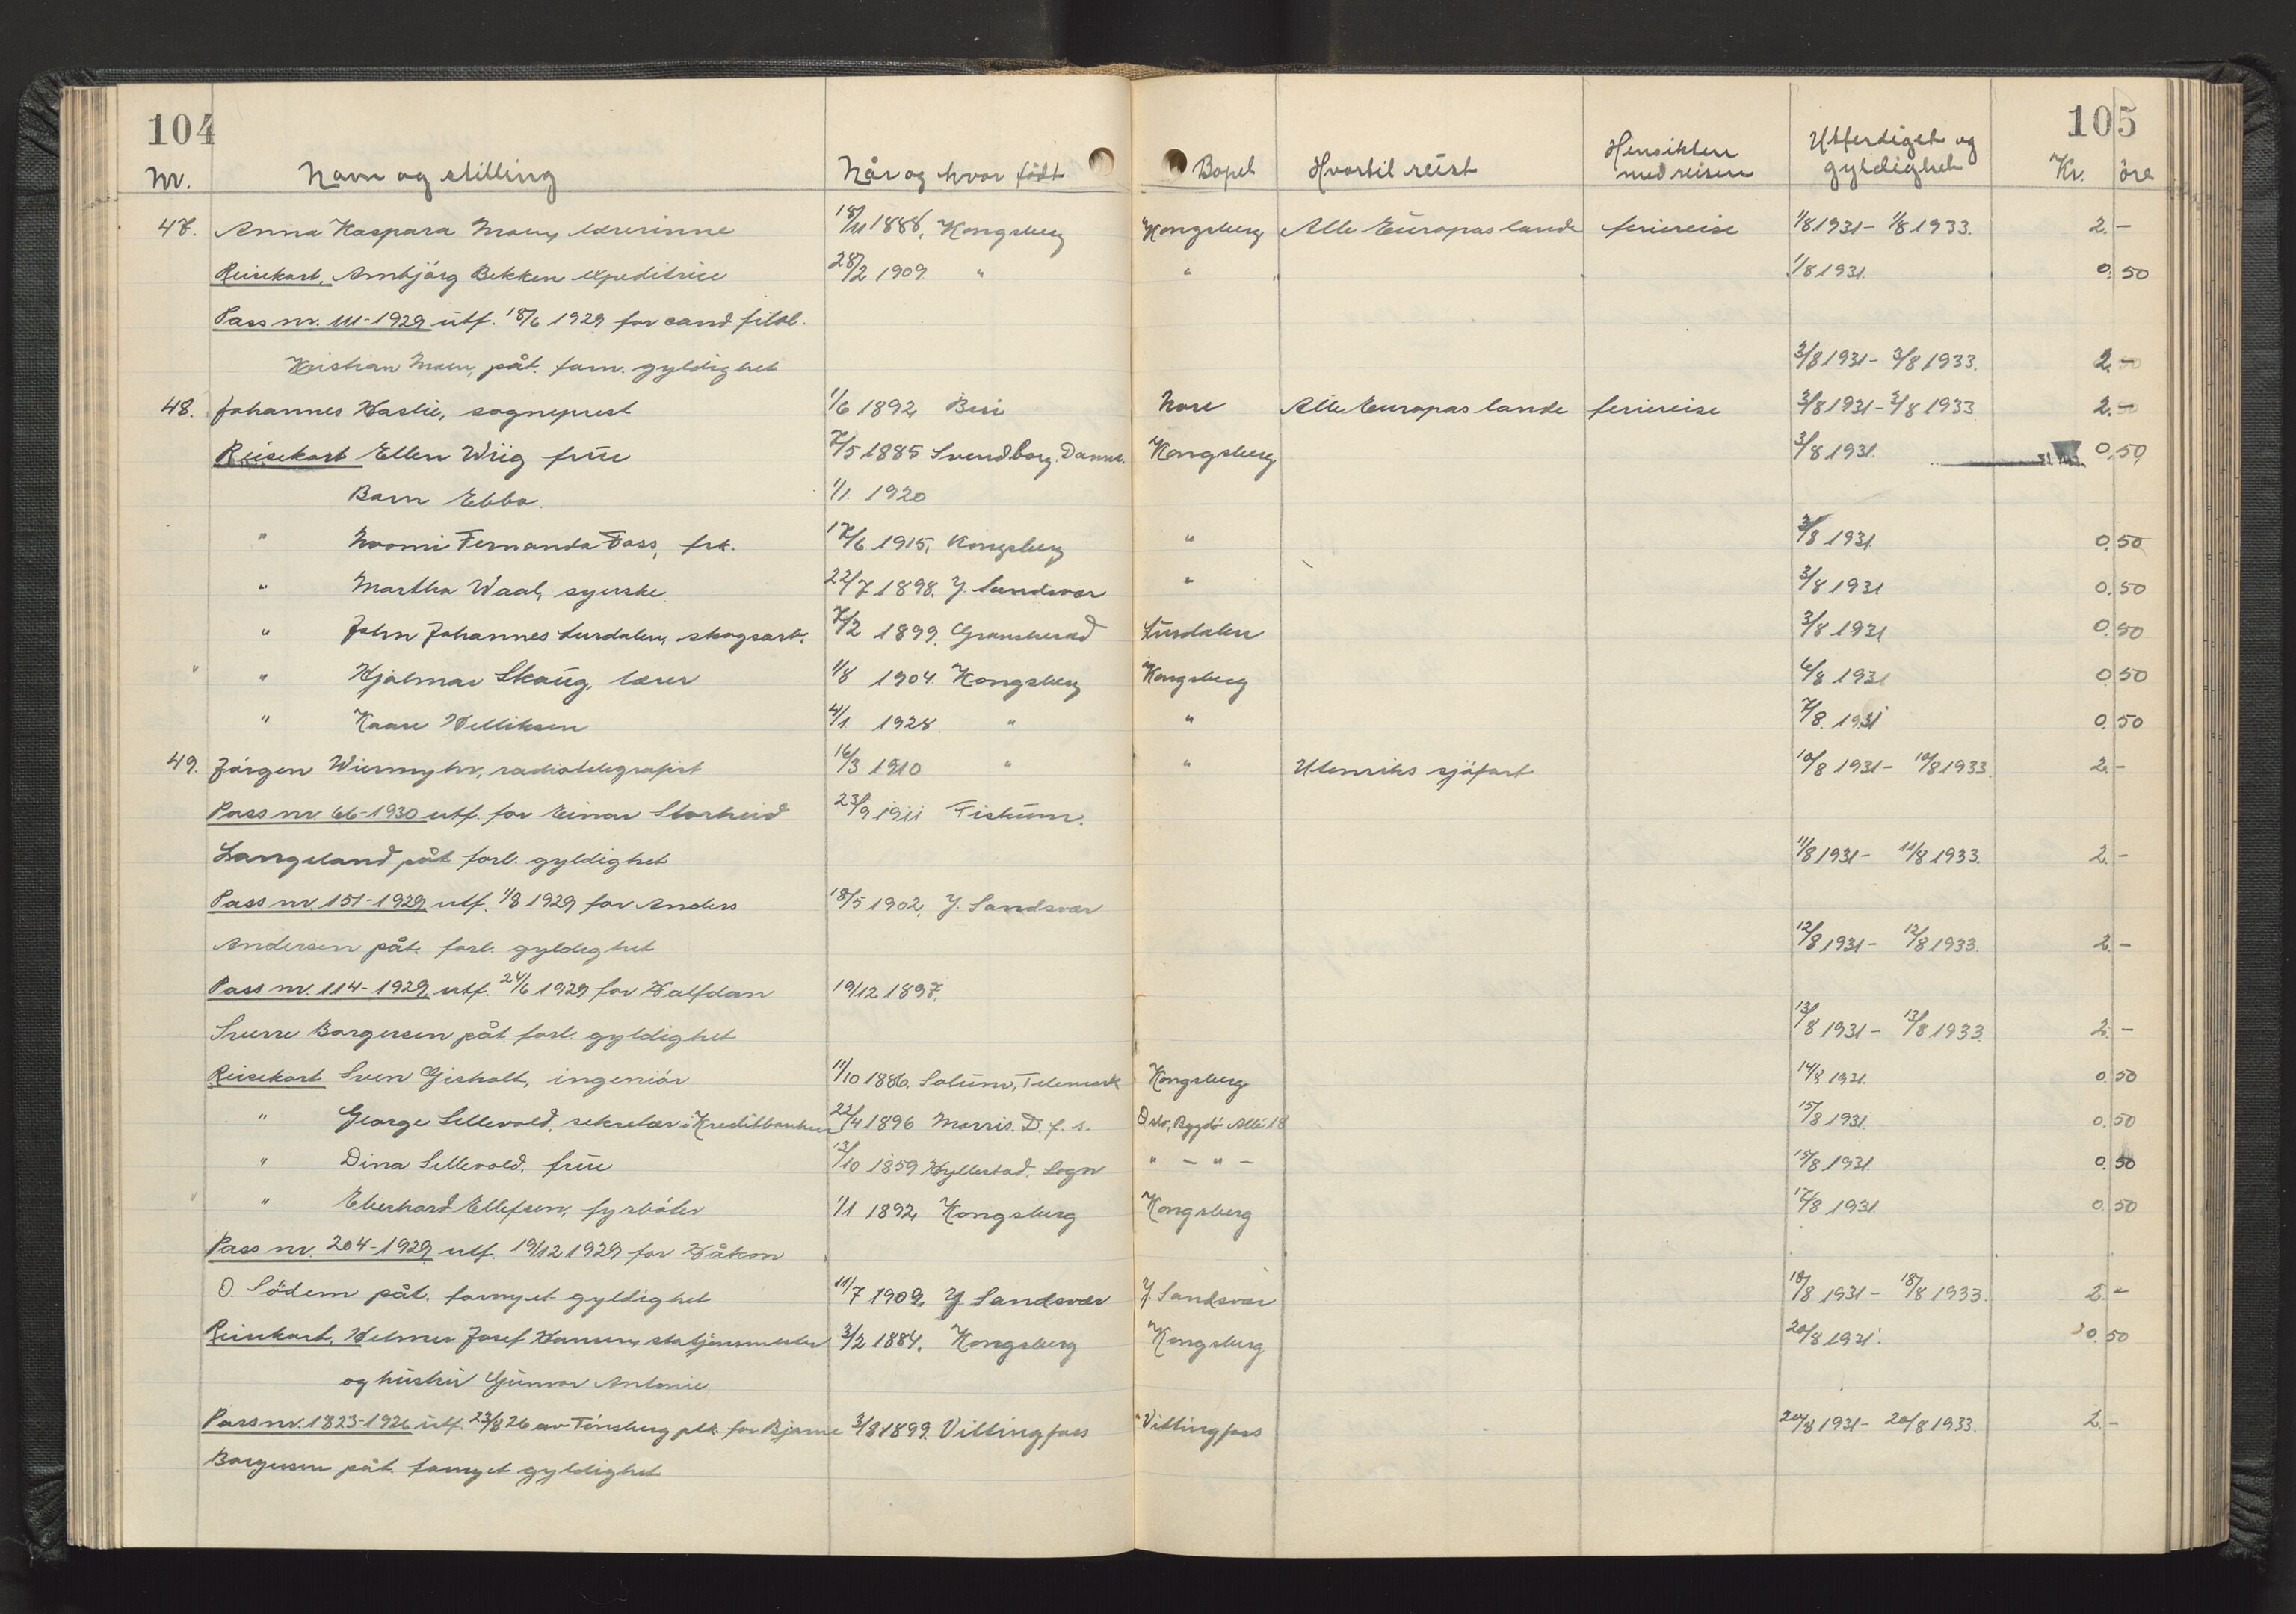 104
105
Nr. Navn og stilling Når og hvor född Bopel Hvortil reist Hensikten med reisen Utferdiget og gyldighet Kr. öre
47. Anna Kaspara Moen, lærerinne 18/11 1888, Kongsberg Kongsberg Alle Europas lande feriereise 1/8 1931 - 1/8 1933. 2. -
Reisekort, Arnbjörg Bekken expeditrice 28/2 1909 " " 1/8 1931. 0. 50
Pass nr. 111-1929 utf. 18/6 1929 for cand filol.
Kristian Moen, påt. forn. gyldighet 3/8 1931 - 3/8 1933. 2. -
48. Johannes Haslie, sogneprest 1/6 1892 Biri Nore Alle Europas lande feriereise 3/8 1931 - 3/8 1933 2. -
Reisekort Ellen Wiig frue 7/5 1885 Svendborg. Danm. Kongsberg 3/8 1931. 0. 50
Barn Ebba. 1/1. 1920
" Noomi Fernanda Foss, frk. 17/6 1915, Kongsberg " 3/8 1931 0. 50
" Martha Waal, syerske 22/7 1898. Y. Sandsvær " 3/8 1931 0. 50
" John Johannes Lurdalen, skogsarb. 7/2 1899. Gransherad Lurdalen 3/8 1931 0. 50
" " Hjalmar Skaug, lærer 1/8 1904. Kongsberg Kongsberg 6/8 1931 0. 50
" Kaare Helliksen 4/1 1928. " " 7/8. 1931 0. 50
49. Jörgen Wiermyhr, radiotelegrafist 16/3 1910 " " Utenriks sjöfart 10/8 1931 - 10/8 1933. 2. -
Pass nr. 66-1930 utf. for Einar Storheid 23/9 1911 Fiskum.
Langeland påt forl. gyldighet 11/8 1931 - 11/8 1933. 2. -
Pass nr. 151-1929 utf. 1/8 1929 for Anders 18/5 1902, Y. Sandsvær
Andersen påt. forl. gyldighet 12/8 1931 - 12/8 1933. 2. -
Pass nr. 114-1929 utf. 24/6 1929 for Halfdan 19/12 1897.
Sverre Borgersen påt. forl. gyldighet 13/8 1931 - 13/8 1933. 2. -
Reisekort Sven Gisholt, ingeniör 11/10 1886, Solum, Telemark Kongsberg 14/8 1931. 0. 50
" George Sellevold, sekretær i Kreditbanken 22/4 1896 Morris. D. f. s. Oslo, Bygdö Allé 18 15/8 1931. 0. 50
" Dina Sellevold, frue 13/10 1859 Hyllestad. Sogn " - " - 15/8 1931. 0. 50
" Eberhard Ellefsen, fyrböter 1/1 1892, Kongsberg Kongsberg 17/8 1931 0. 50
Pass nr. 204-1929 utf. 19/12 1929 for Håkon
O. Södem påt. fornyet gyldighet 11/7 1909, Y. Sandsvær Y. Sandsvær 18/8 1931 - 18/8 1933. 2. -
Reisekort, Helmer Josef Hansen, stasjonsmester 3/2 1884. Kongsberg Kongsberg 20/8 1931. 0. 50
og hustru Gunvor Antonie
Pass nr. 1823-1926 utf. 23/8 26 av Tönsberg plk. for Bjarne 3/8 1899. Vittingfoss Vittingfoss 20/8 1931 - 20/8 1933. 2. -
Borgersen påt. fornyet gyldighet